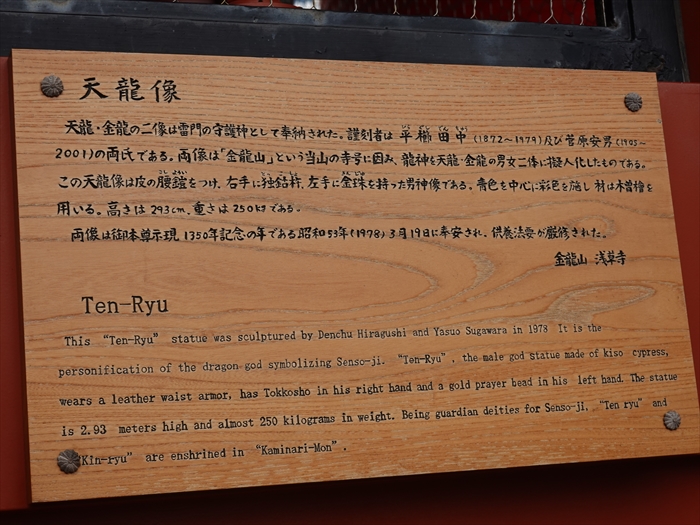 天龍像
天龍・金龍の二像は雷門の守護神として奉納された。謹刻者は 平櫛田中 (1872〜1979)及び菅原安男(1905〜
2001)の両氏である。両像は「金龍山」という当山の寺号に因み、龍神を天龍・金龍の男女二体に擬人化したものである。
この天龍像は皮の腰鎧をつけ、右手に独鈷杵、左手に金珠を持った男神像である。青色を中心に彩色を施し 材は木曽檜を
用いる。高さは293cm、重さは250kgである。
両像は御本尊示現1350年記念の年である昭和53年(1978)3月19日に奉安され、供養法要が厳修された。
金龍山 浅草寺
Ten-Ryu
This “Ten-Ryu” statue was sculptured by Denchu Hiragushi and Yasuo Sugawara in 1978 It is the
personification of the dragon god symbolizing Senso-ji. “Ten-Ryu”, the male god statue made of kiso cypress,
wears a leather waist armor, has Tokkosho in his right hand and a gold prayer bead in his left hand. The statue
is 2.93 meters high and almost 250 kilograms in weight. Being guardian deities for Senso-ji, “Ten ryu” and
Kin-ryu” are enshrined in “Kaminari-Mon”.